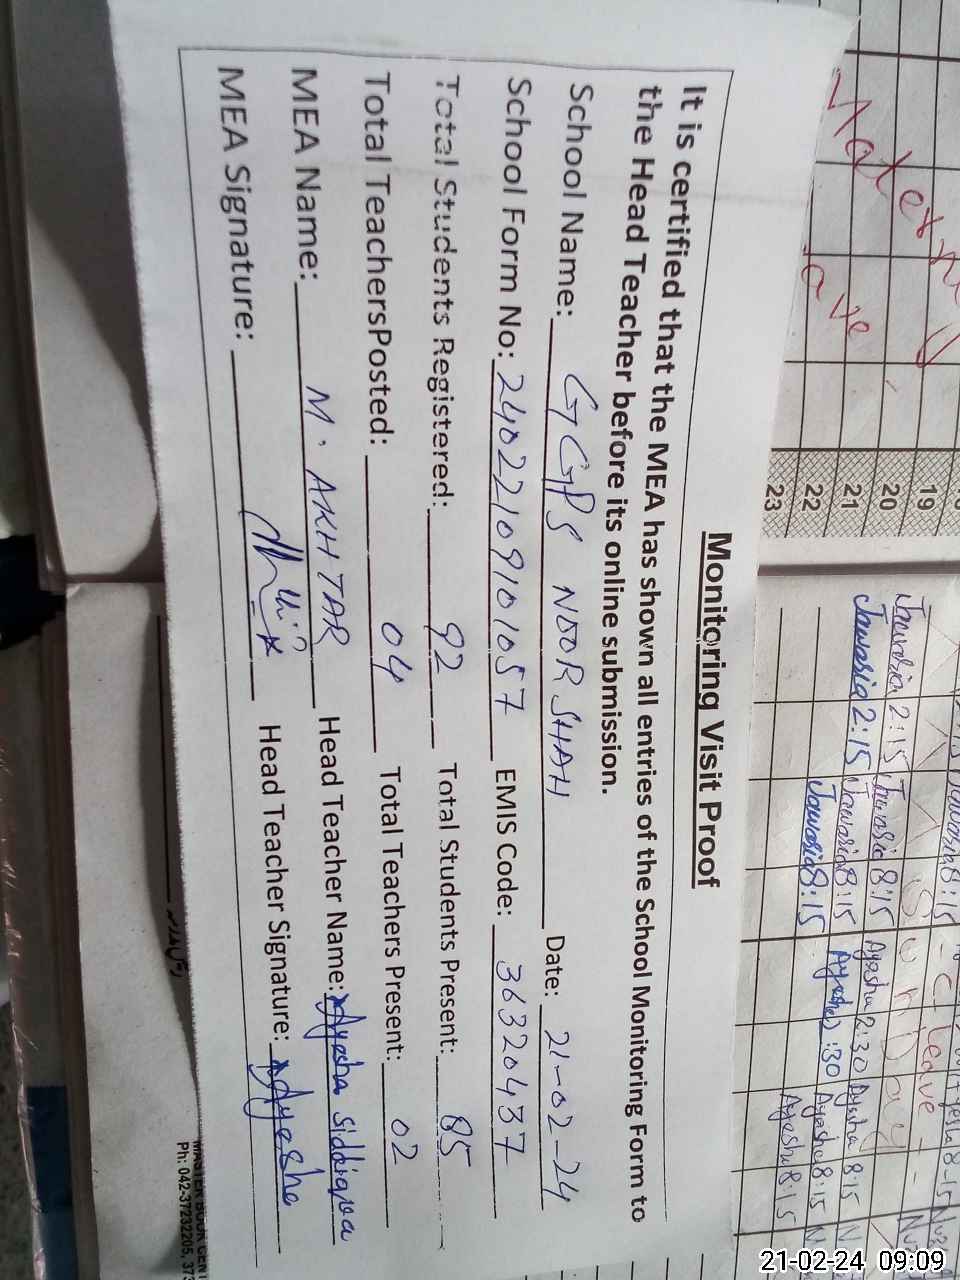 Monitoring Visit Proof
It is certified that the MEA has shown all entries of the School Monitoring Form to
the Head Teacher before its online submission.
School Name: GGPS NOOR SHAH Date: 21-02-24
School Form No: 24022109101057 EMIS Code: 36320437
Total Students Registered: 92 Total Students Present: 85
Total TeachersPosted: 04 Total Teachers Present: 02
MEA Name: M. AKHTAR Head Teacher Name: Ayesha Siddiqua
MEA Signature: Head Teacher Signature: Ayesha
19
20
21
22
23
Leave
Sunday
Jawaria 2:15 Jawaria 8:15 Ayesha 2:30 Ayesha 8:15
Jawaria 2:15 Jawaria 8:15 Ayesha 2:30 Ayesha 8:15
Jawaria 8:15 Ayesha 8:15
MASTER BOOK CENT
Ph: 042-37232205, 373
21-02-24 09:09